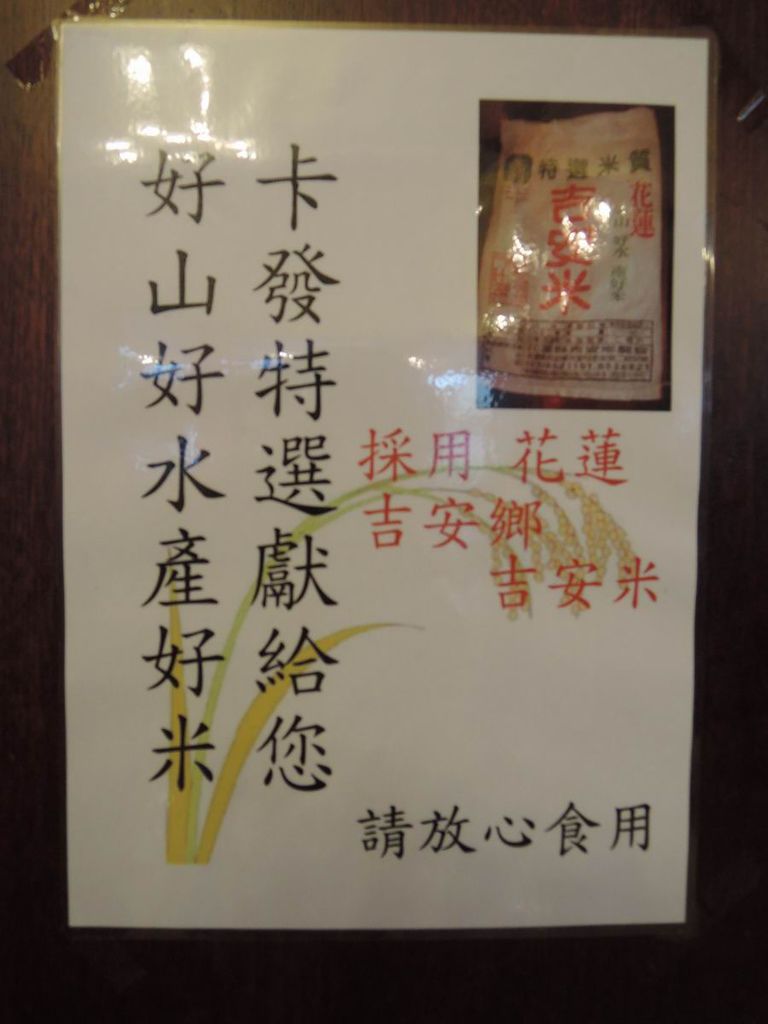 特選米質
花蓮
吉安米
採用 花蓮
吉安鄉
吉安米
卡發特選獻給您
好山好水產好米
請放心食用